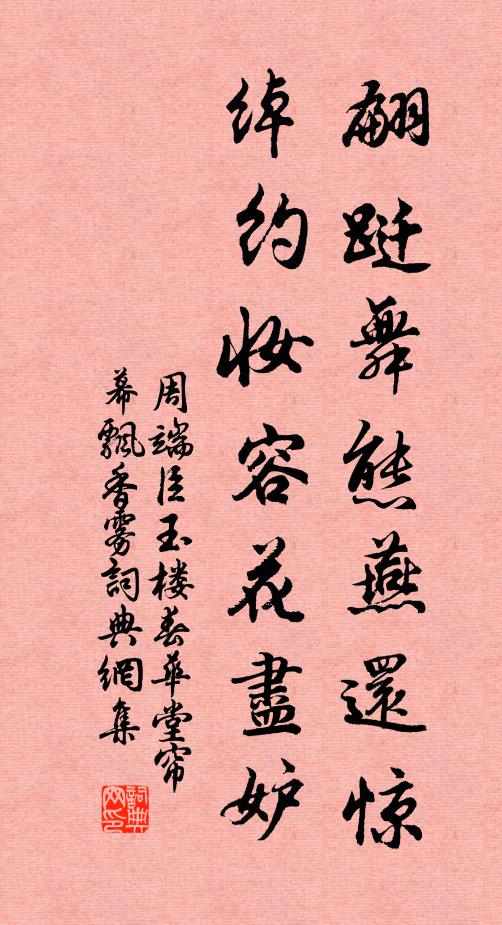 翩跹舞態燕還惊
绰约妆容花盡妒
周端臣玉楼春華堂帘
幕飄香雾詞典網集
詞典网印